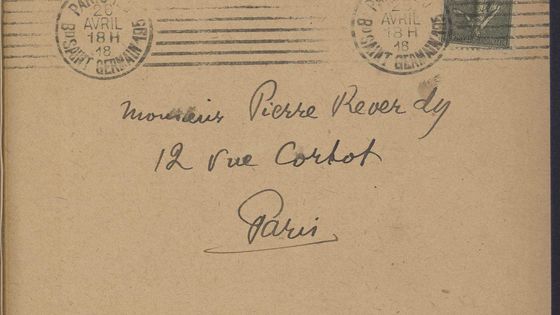 PARIS
20
AVRIL
18H
18
BD SAINT GERMAIN 195
AVRIL
18H
18
BD SAINT GERMAIN 195
Monsieur Pierre Reverdy
12 rue Cortot
Paris